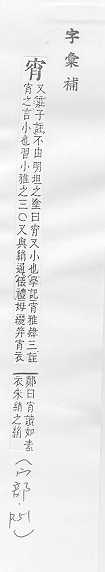 字彙補
宵 又莊子註不由明坦之塗曰宵又小也學記宵雅肄三註
宵之言小也習小雅之三〇又與綃通儀禮姆纚笄宵衣
鄭曰宵讀如素
衣朱綃之綃
(宀部.